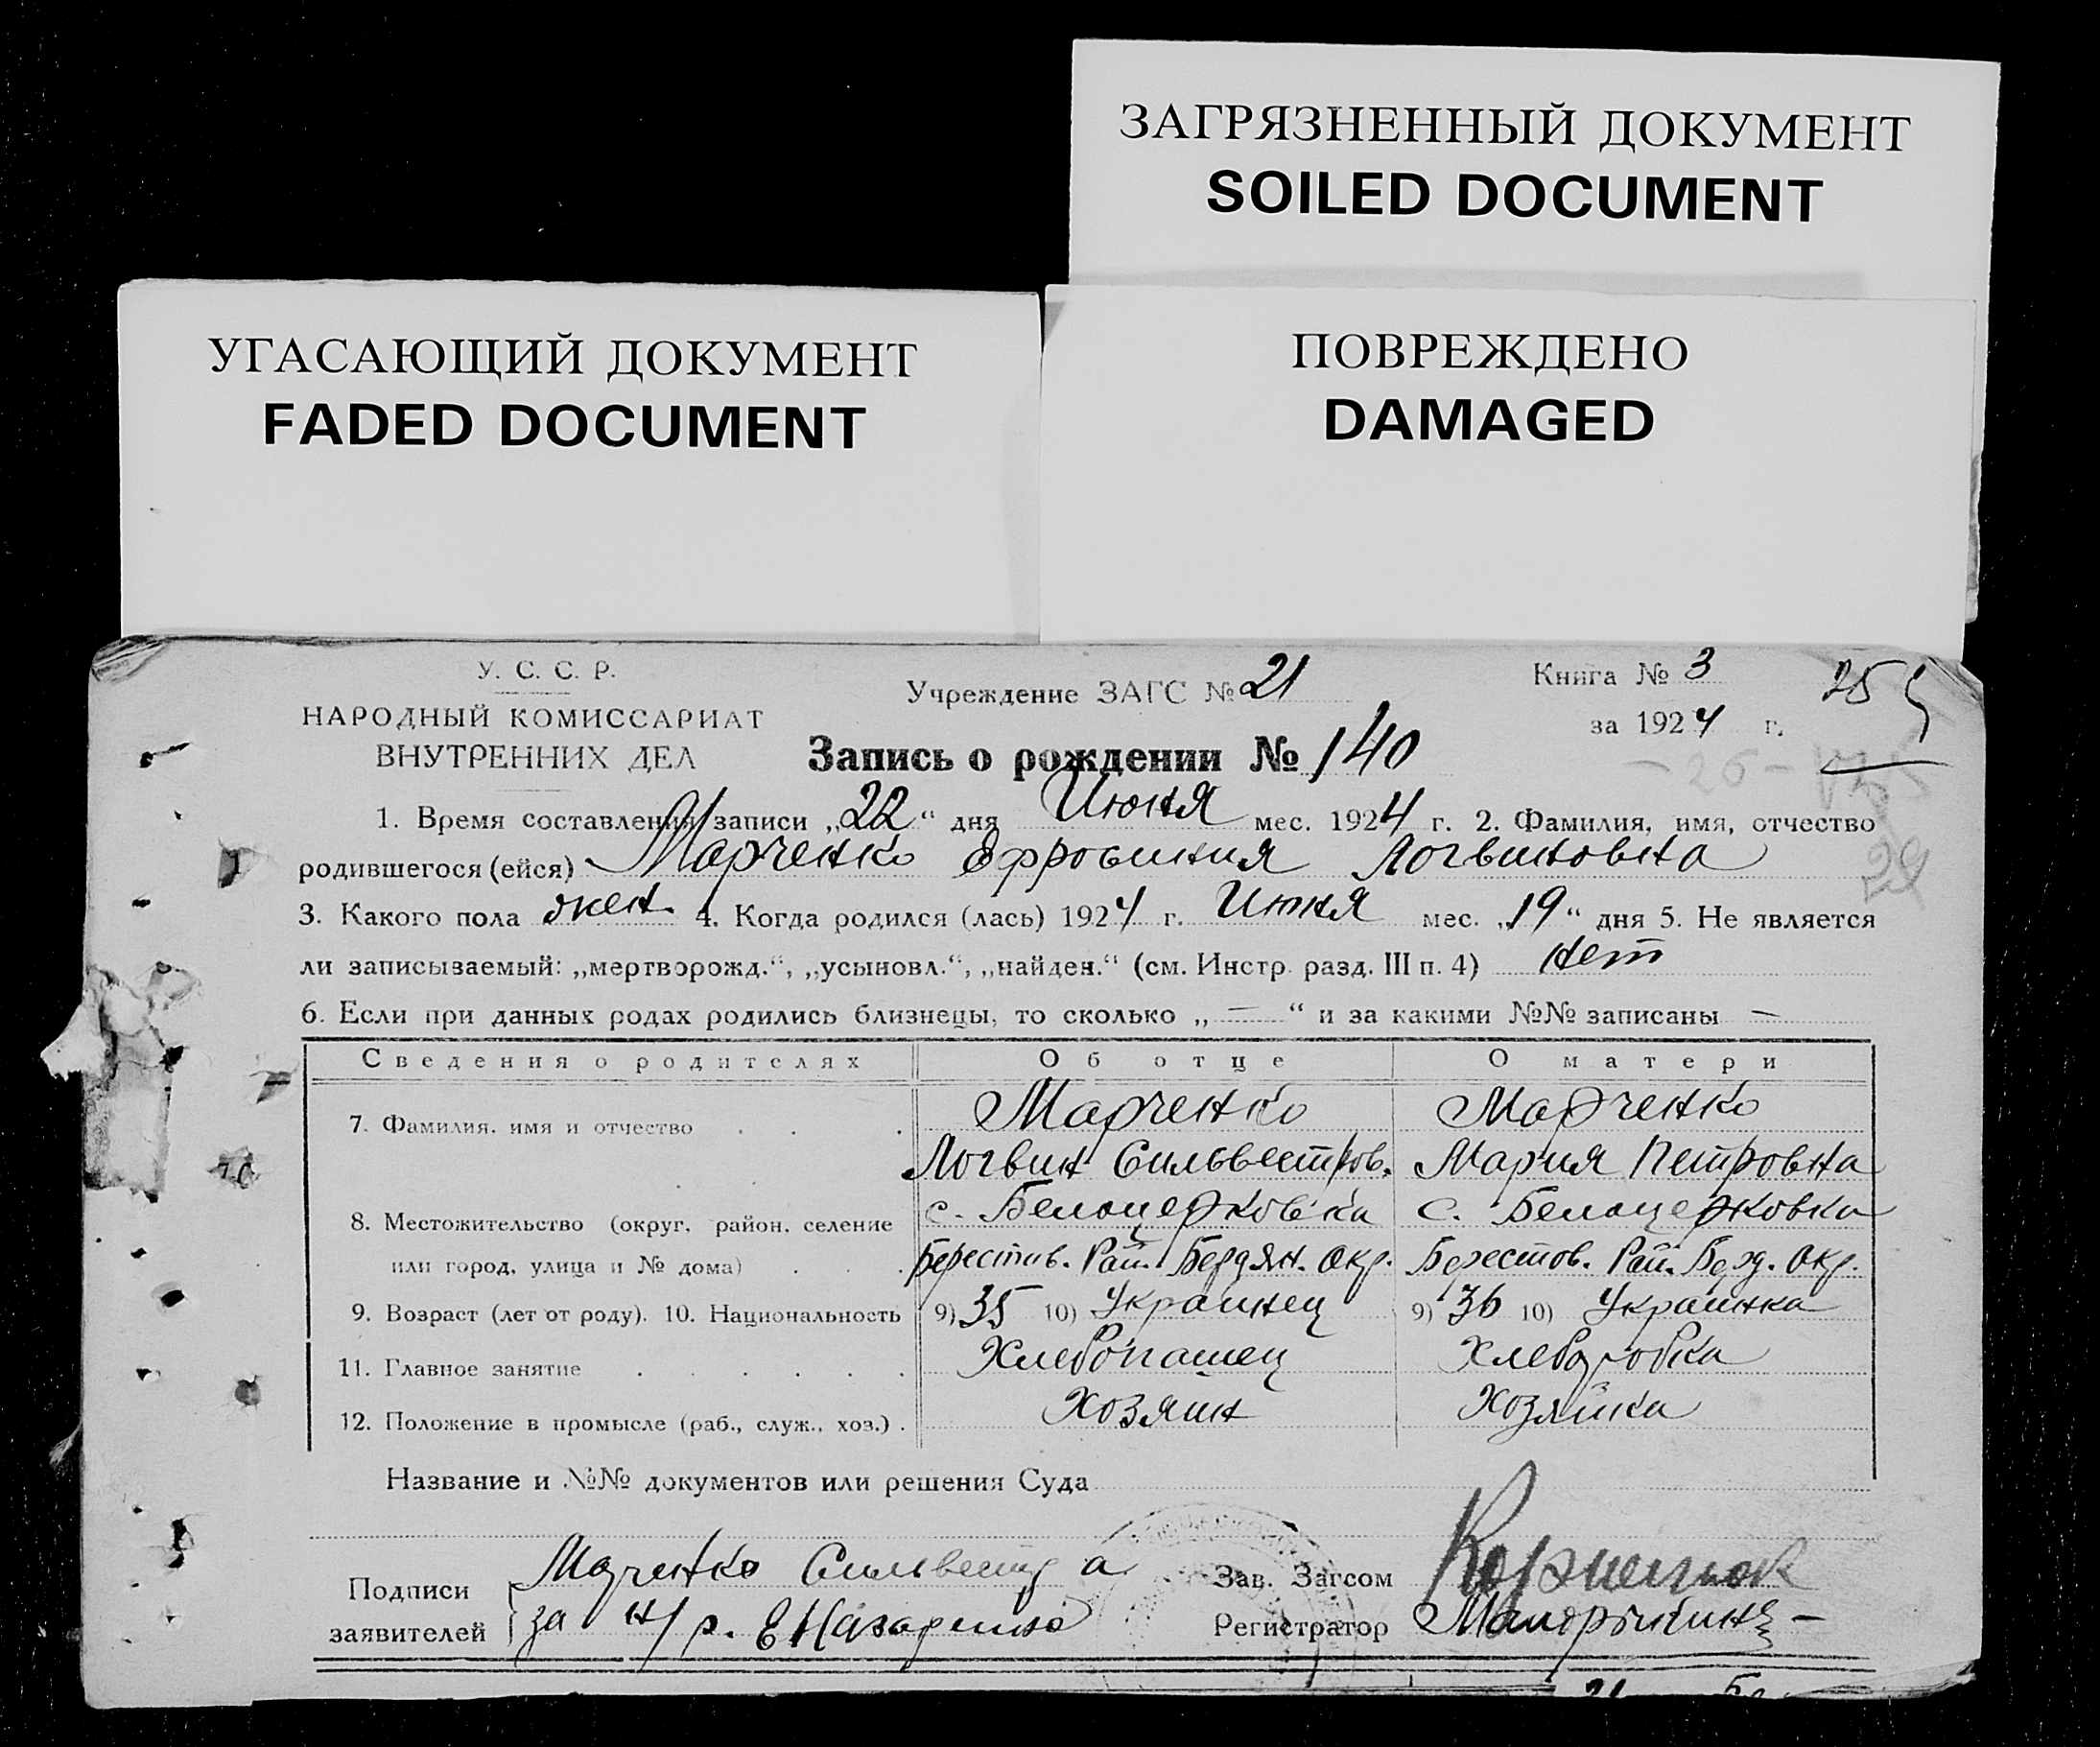 ЗАГРЯЗНЕННЫЙ ДОКУМЕНТ
SOILED DOCUMENT
УГАСАЮЩИЙ ДОКУМЕНТ
FADED DOCUMENT
ПОВРЕЖДЕНО
DAMAGED
У. С. С. Р.
НАРОДНЫЙ КОМИССАРИАТ
ВНУТРЕННИХ ДЕЛ
Учреждение ЗАГС № 21
Книга № 3
за 1924 г.
25
Запись о рождении № 140
1. Время составления записи „22“ дня Июня мес. 1924 г. 2. Фамилия, имя, отчество
родившегося (ейся) Марченко Ефросиния Логвиновна
3. Какого пола жен. 4. Когда родился (лась) 1924 г. Июня мес. „19“ дня 5. Не является
ли записываемый: „мертворожд.“, „усыновл.“, „найден.“ (см. Инстр. разд. III п. 4) нет
6. Если при данных родах родились близнецы, то сколько „ — “ и за какими №№ записаны —
Сведения о родителях Об отце О матери
7. Фамилия, имя и отчество Марченко Марченко
Логвин Сильвестров. Мария Петровна
8. Местожительство (округ, район, селение с. Белоцерковка с. Белоцерковка
или город, улица и № дома) Берестов. Рай. Бердян. Окр. Берестов. Рай. Берд. Окр.
9. Возраст (лет от роду). 10. Национальность 9) 35 10) Украинец 9) 36 10) Украинка
11. Главное занятие Хлебопашец Хлеборобка
12. Положение в промысле (раб., служ., хоз.) . Хозяин Хозяйка
Название и №№ документов или решения Суда
Подписи
заявителей
Марченко Сильвестра
за н/р.
Зав. Загсом
Регистратор